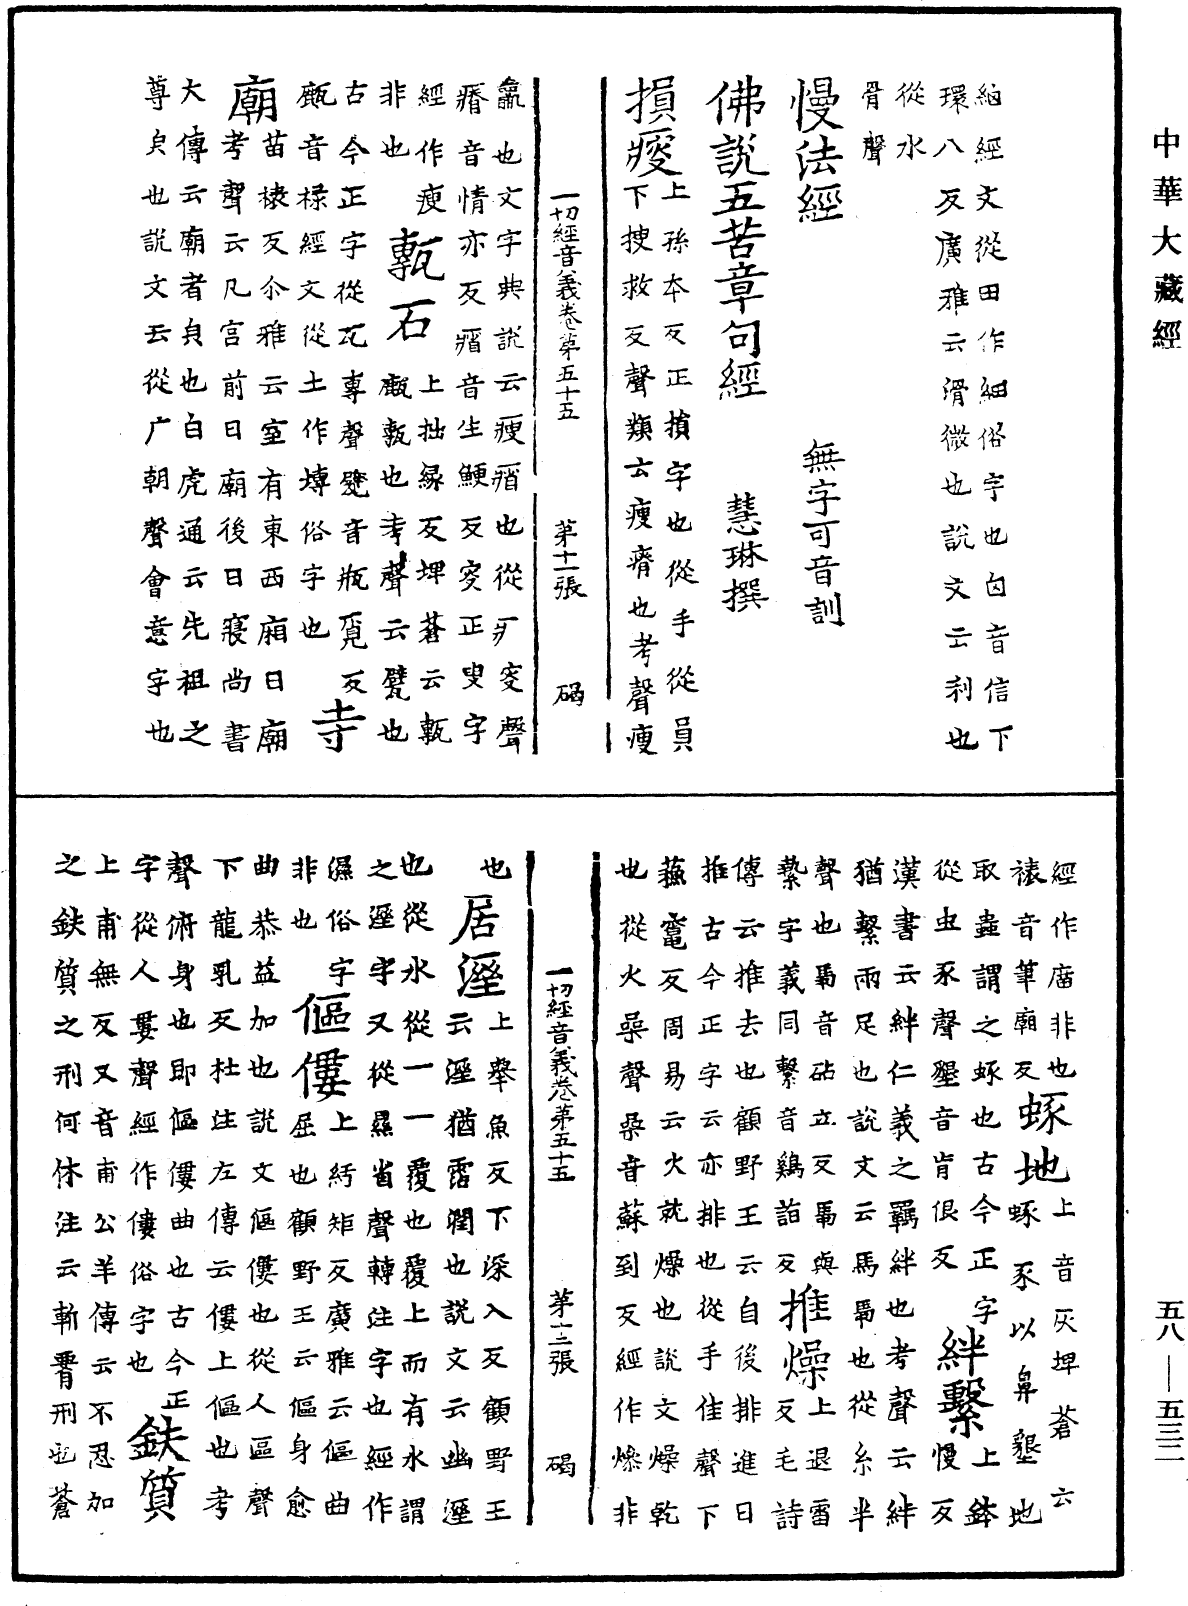 中華大藏經
細經文從田作細俗字也囟音信下
環八反廣雅云滑微也說文云利也
從水
骨聲
慢法經 無字可音訓
佛說五苦章句經 慧琳撰
損瘦上孫本反正損字也從手從員
下搜救反聲類云瘦瘠也考聲瘦
一切經音義卷第五十五 第十一張 碣
羸也文字典說云瘦㾪也從疒叟聲
瘠音情亦反㾪音生鯁反叜正叟字
經作瘦
非也 甎石上拙緣反埤蒼云甎
瓳甎也考聲云甓也
古今正字從瓦專聲甓音瓶覓反
瓳音祿經文從土作塼俗字也 寺
廟苗棣反尒雅云室有東西廂曰廟
考聲云凡宮前曰廟後曰寢尚書
大傳云廟者皃也白虎通云先祖之
尊皃也說文云從广朝聲會意字也
經作庿非也 蝝地上音灰埤蒼云
䘠音筆廟反 豕以鼻墾地
取蟲謂之蝝也古今正字
從虫豕聲墾音肯佷反 絆繫上鉢慢反
漢書云絆仁義之羈絆也考聲云絆
猶繫兩足也說文云馬馽也從糸半
聲也馽音砧立反馽與
縶字義同繫音鷄詣反 推燥上退雷反毛詩
傳云推去也顧野王云自後排進曰
推古今正字云亦排也從手隹聲下
蘓竈反周易云火就燥也說文燥乾
也從火喿聲喿音蘇到反經作㷮非
一切經音義卷第五十五 第十二張 碣
也 居溼上舉魚反下深入反顧野王
云溼猶霑潤也說文云幽溼
也從水從一一覆也覆上而有水謂
之溼字又從㬎省聲轉注字也經作
濕俗字
非也 傴僂上紆矩反廣雅云傴曲
屈也顧野王云傴身愈
曲恭益加也說文傴僂也從人區聲
下龍乳反杜注左傳云僂上傴也考
聲俯身也即傴僂曲也古今正
字從人婁聲經作僂俗字也 鈇質
上甫無反又音甫公羊傳云不忍加
之鈇質之刑何休注云斬𦝫刑也蒼
五八—五三二